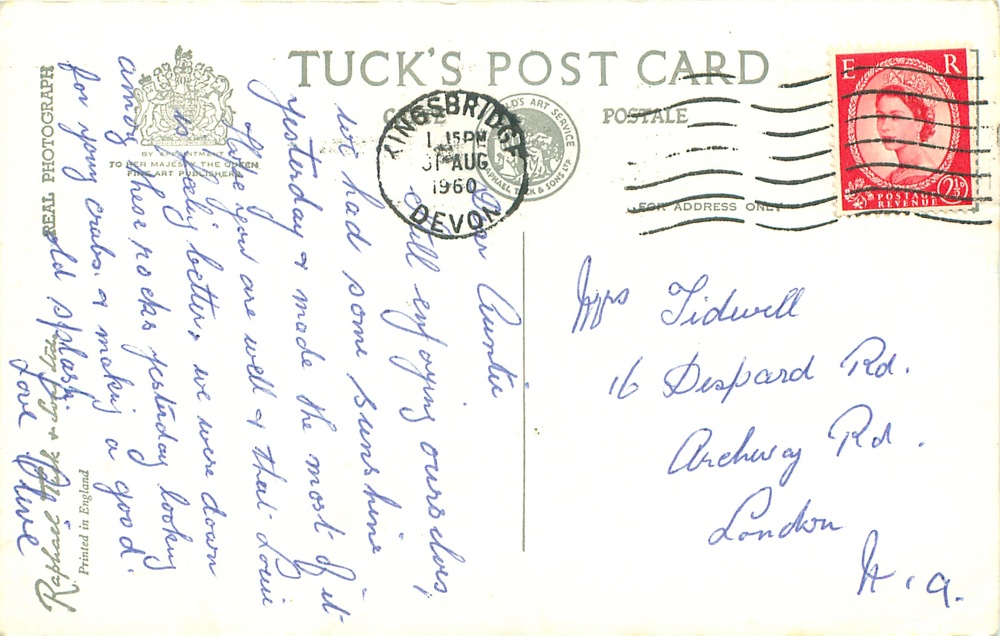 TUCK'S POST CARD
CARTE POSTALE
REAL PHOTOGRAPH
BY APPOINTMENT
TO HER MAJESTY THE QUEEN
FINE ART PUBLISHERS
WORLD'S ART SERVICE
RAPHAEL TUCK & SONS LTD
KINGSBRIDGE
1. 15PM
31 AUG
1960
DEVON
E R
2½D
POSTAGE
REVENUE
FOR ADDRESS ONLY
Dear Auntie
still enjoying ourselves,
we had some sunshine
yesterday & made the most of it
Hope you are well & that Louie
is feeling better, we were down
among these rocks yesterday looking
for young crabs. & making a good
old splash.
Love Olive
Mrs Tidwell
16 Despard Rd.
Archway Rd.
London
N. 19.
Raphael Tuck & Sons Ltd.
Printed in England